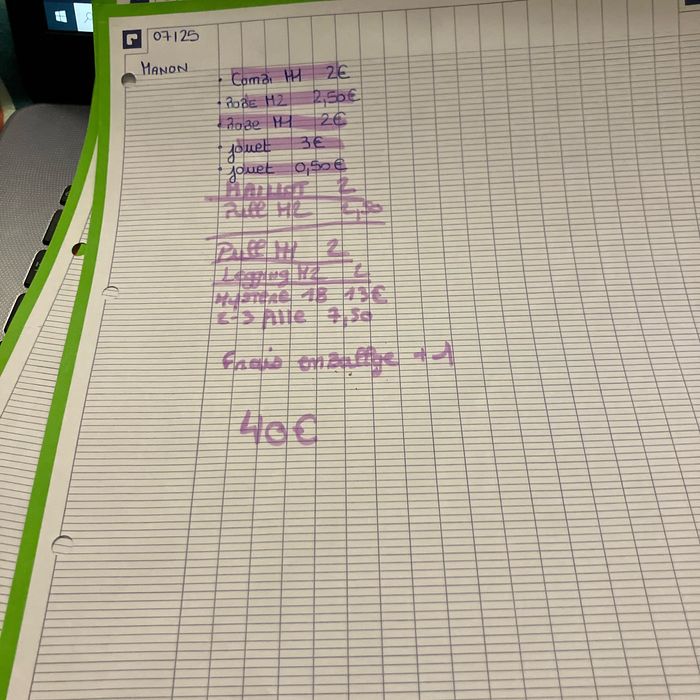 07/25
MANON
• Combi M1 2€
• Robe M2 2,50€
• Robe M1 2€
• jouet 3€
• jouet 0,50€
MAILLOT 2
Pull M2 2,50
Pull M1 2
Legging M2 2
Mystère 18 13€
2-3 Alle 7,50
Frais emballge +1
40€